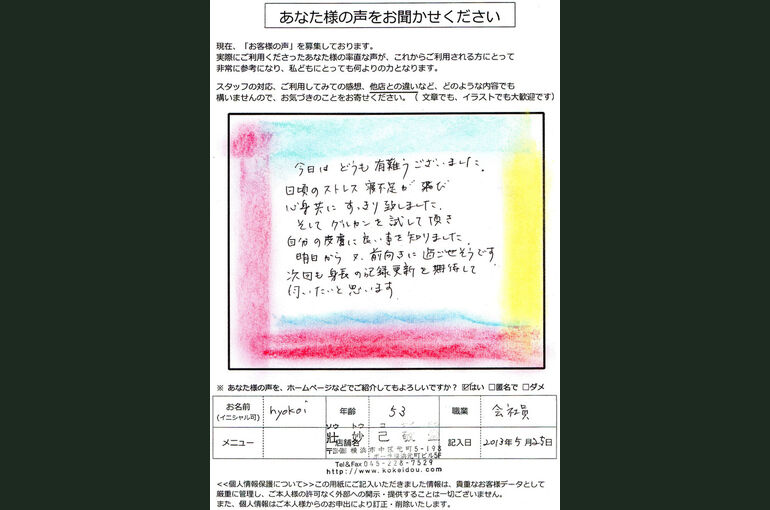 あなた様の声をお聞かせください
現在、「お客様の声」を募集しております。
実際にご利用くださったあなた様の率直な声が、これからご利用される方にとって
非常に参考になり、私どもにとっても何よりの力となります。
スタッフの対応、ご利用してみての感想、他店との違いなど、どのような内容でも
構いませんので、お気づきのことをお寄せください。（ 文章でも、イラストでも大歓迎です）
今日は どうも 有難うございました。
日頃のストレス 寝不足が 飛び
心身共に すっきり致しました。
そして グルカンを 試して頂き
自分の皮膚に良い事を知りました。
明日から 又、前向きに 過ごせそうです
次回も身長の記録更新を期待して
伺いたいと思います。
※ あなた様の声を、ホームページなどでご紹介してもよろしいですか？ ☑はい □匿名で □ダメ
お名前 hyokoi 年齢 53 職業 会社員
(イニシャル可)
ソウ トウ コ
メニュー 壮 妙 店舗名 己 記入日 2013年5月25日
横浜市中区元町5-198
ポーラ横浜元町ビル5F
Tel＆Fax 045-228-7529
http://www.kokeidou.com
<<個人情報保護について>>この用紙にご記入いただきました情報は、貴重なお客様データとして
厳重に管理し、ご本人様の許可なく外部への開示・提供することは一切ございません。
また、個人情報はご本人様からのお申出により訂正・削除いたします。